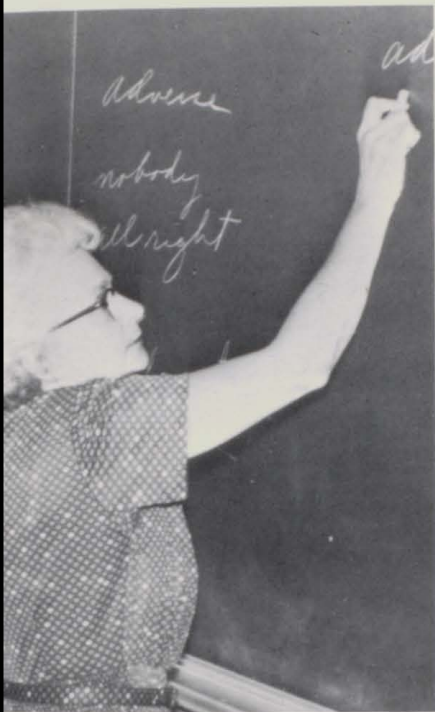 ad
adverse
nobody
all right